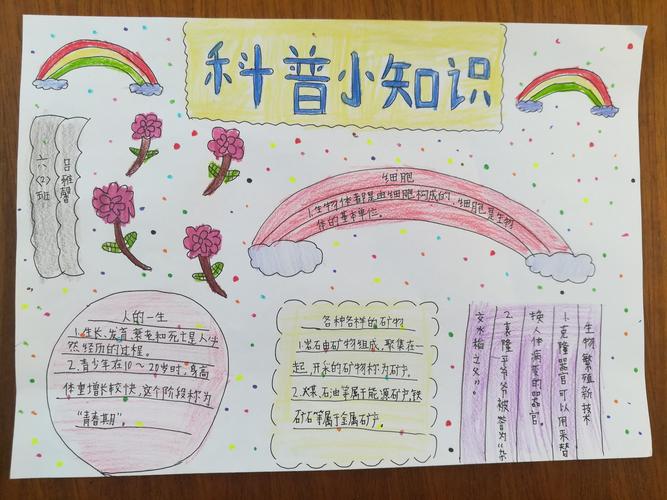 科普小知识
吕雅馨
六(2)班
细胞
1.生物体都是由细胞构成的,细胞是生物
体的基本单位。
人的一生
1.生长、发育、衰老和死亡是人必
然经历的过程。
2.青少年在10～20岁时,身高
体重增长较快,这个阶段称为
“青春期”
各种各样的矿物
1.岩石由矿物组成,聚集在一
起,开采的矿物称为矿产。
2.煤、石油等属于能源矿产,铁
矿石等属于金属矿产。
生物繁殖新技术
1.克隆器官可以用来替
换人体病变的器官。
2.袁隆平爷爷被誉为“杂
交水稻之父”。